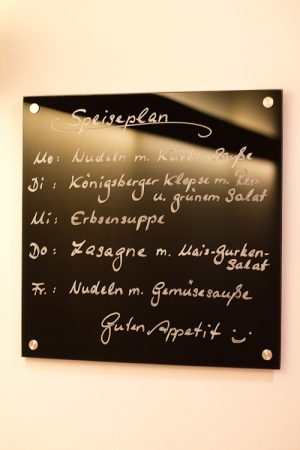 Speiseplan
Mo: Nudeln m. Kürbissauße
Di: Königsberger Klopse m.
u. grünem Salat
Mi: Erbsensuppe
Do: Lasagne m. Mais-Gurken-
Salat
Fr.: Nudeln m. Gemüsesauße
Guten Appetit :)